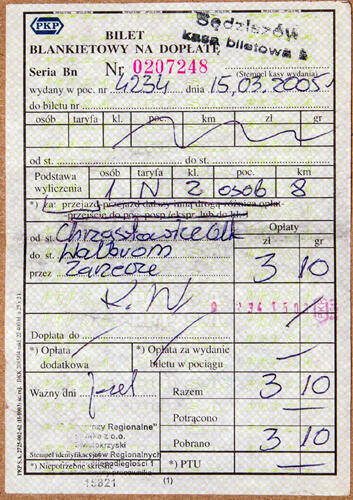 PKP
BILET
BLANKIETOWY NA DOPŁATĘ
Sędziszów
kasa biletowa 1
Seria Bn Nr 0207248
(Stempel kasy wydania)
wydany w poc. nr 4234 dnia 15.03.2005r
do biletu nr
osób taryfa kl. poc. km zł gr
od st. do st.
Podstawa wyliczenia osób taryfa kl. poc. km
1 N 2 osob 8
*) za: przejazd-przejazd dalszy inną drogą-różnica opłat-
-przejście do poc. posp./ekspr. lub do kl. 1
Opłaty
od st. Chrząstowice Olk zł gr
do st. Wolbrom 3 10
przez Zarzecze
K.W
Dopłata do —
*) Opłata dodatkowa
*) Opłata za wydanie biletu w pociągu —
Ważny dni Razem 3 10
Potrącono —
Pobrano 3 10
Regionalne"
z o.o.
Świętokrzyski
Stempel identyfikacyjny
Regionalnych
Niepodległości 1
*) Niepotrzebne skreślić
*) PTU —
15821
(1)